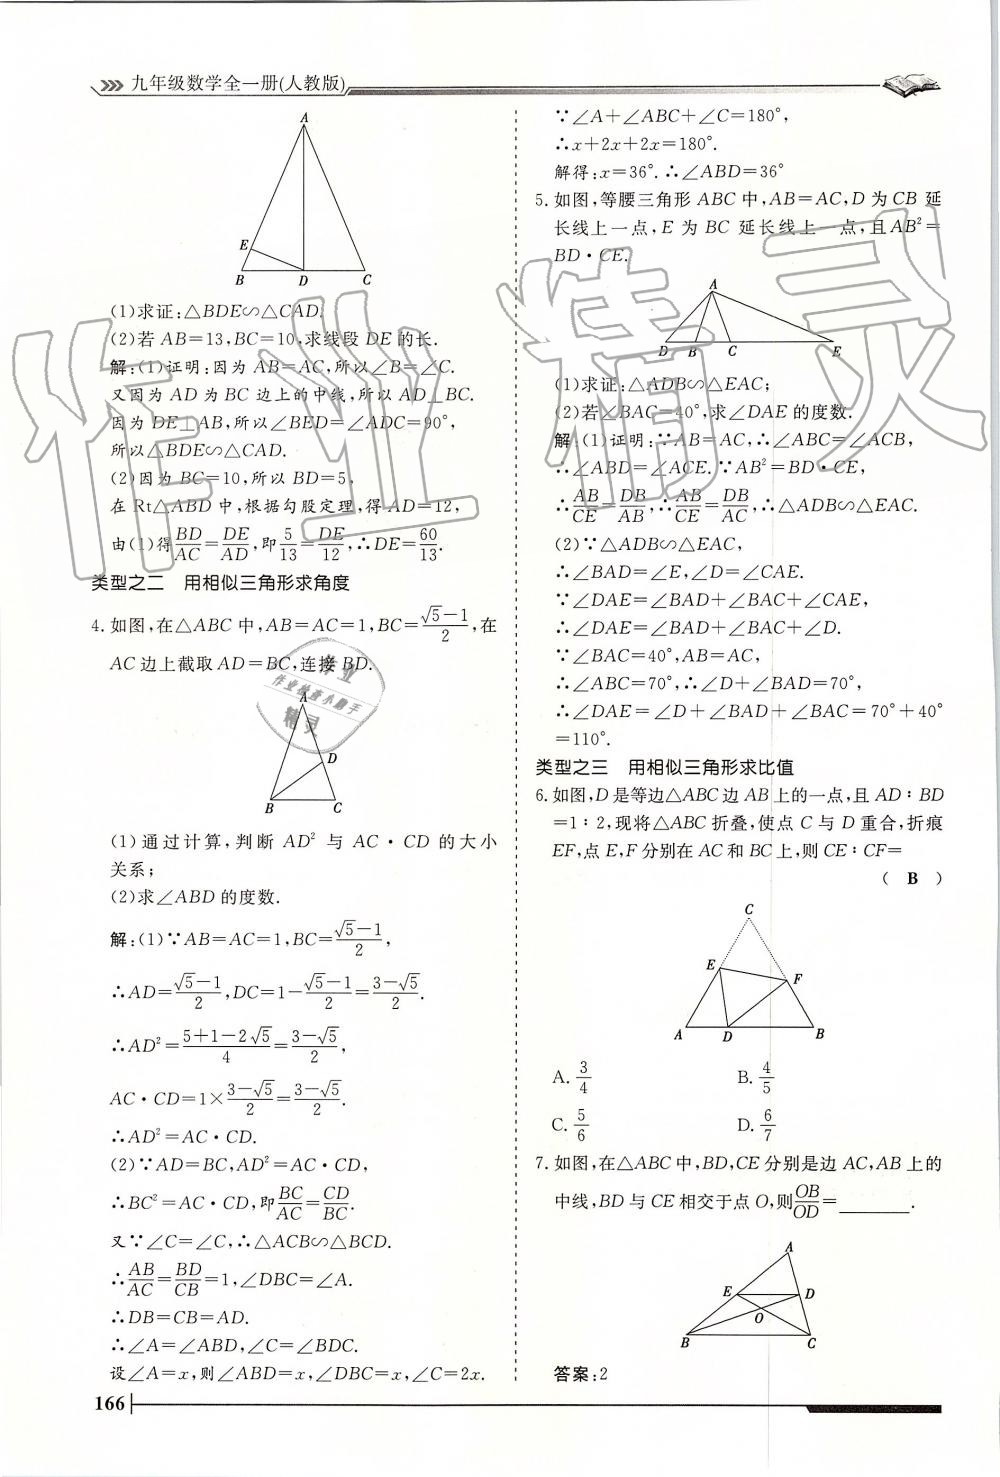 九年级数学全一册(人教版)
A
E
B D C
(1)求证:△BDE∽△CAD.
(2)若 AB=13,BC=10,求线段 DE 的长.
解:(1)证明:因为 AB=AC,所以∠B=∠C.
又因为 AD 为 BC 边上的中线,所以 AD⊥BC.
因为 DE⊥AB,所以∠BED=∠ADC=90°,
所以△BDE∽△CAD.
(2)因为 BC=10,所以 BD=5,
在 Rt△ABD 中,根据勾股定理,得 AD=12,
由(1)得BD/AC=DE/AD,即5/13=DE/12,∴DE=60/13.
类型之二 用相似三角形求角度
4.如图,在△ABC 中,AB=AC=1,BC=(√5-1)/2,在
AC 边上截取 AD=BC,连接 BD.
A
D
B C
(1)通过计算,判断 AD² 与 AC·CD 的大小
关系;
(2)求∠ABD 的度数.
解:(1)∵AB=AC=1,BC=(√5-1)/2,
∴AD=(√5-1)/2,DC=1-(√5-1)/2=(3-√5)/2.
∴AD²=(5+1-2√5)/4=(3-√5)/2,
AC·CD=1×(3-√5)/2=(3-√5)/2.
∴AD²=AC·CD.
(2)∵AD=BC,AD²=AC·CD,
∴BC²=AC·CD,即BC/AC=CD/BC.
又∵∠C=∠C,∴△ACB∽△BCD.
∴AB/AC=BD/CB=1,∠DBC=∠A.
∴DB=CB=AD.
∴∠A=∠ABD,∠C=∠BDC.
设∠A=x,则∠ABD=x,∠DBC=x,∠C=2x.
∵∠A+∠ABC+∠C=180°,
∴x+2x+2x=180°.
解得:x=36°.∴∠ABD=36°
5.如图,等腰三角形 ABC 中,AB=AC,D 为 CB 延
长线上一点,E 为 BC 延长线上一点,且AB²=
BD·CE.
A
D B C E
(1)求证:△ADB∽△EAC;
(2)若∠BAC=40°,求∠DAE 的度数.
解:(1)证明:∵AB=AC,∴∠ABC=∠ACB,
∴∠ABD=∠ACE.∵AB²=BD·CE,
∴AB/CE=DB/AB,∴AB/CE=DB/AC,∴△ADB∽△EAC.
(2)∵△ADB∽△EAC,
∴∠BAD=∠E,∠D=∠CAE.
∵∠DAE=∠BAD+∠BAC+∠CAE,
∴∠DAE=∠D+∠BAD+∠BAC.
∵∠BAC=40°,AB=AC,
∴∠ABC=70°,∴∠D+∠BAD=70°,
∴∠DAE=∠D+∠BAD+∠BAC=70°+40°
=110°.
类型之三 用相似三角形求比值
6.如图,D 是等边△ABC 边 AB 上的一点,且 AD∶BD
=1∶2,现将△ABC 折叠,使点 C 与 D 重合,折痕
EF,点 E,F 分别在 AC 和 BC 上,则 CE∶CF=
( B )
C
E
F
A D B
A.3/4 B.4/5
C.5/6 D.6/7
7.如图,在△ABC 中,BD,CE 分别是边 AC,AB 上的
中线,BD 与 CE 相交于点 O,则OB/OD=________.
A
E D
O
B C
答案:2
166
作业精灵
作业检查小助手
精灵